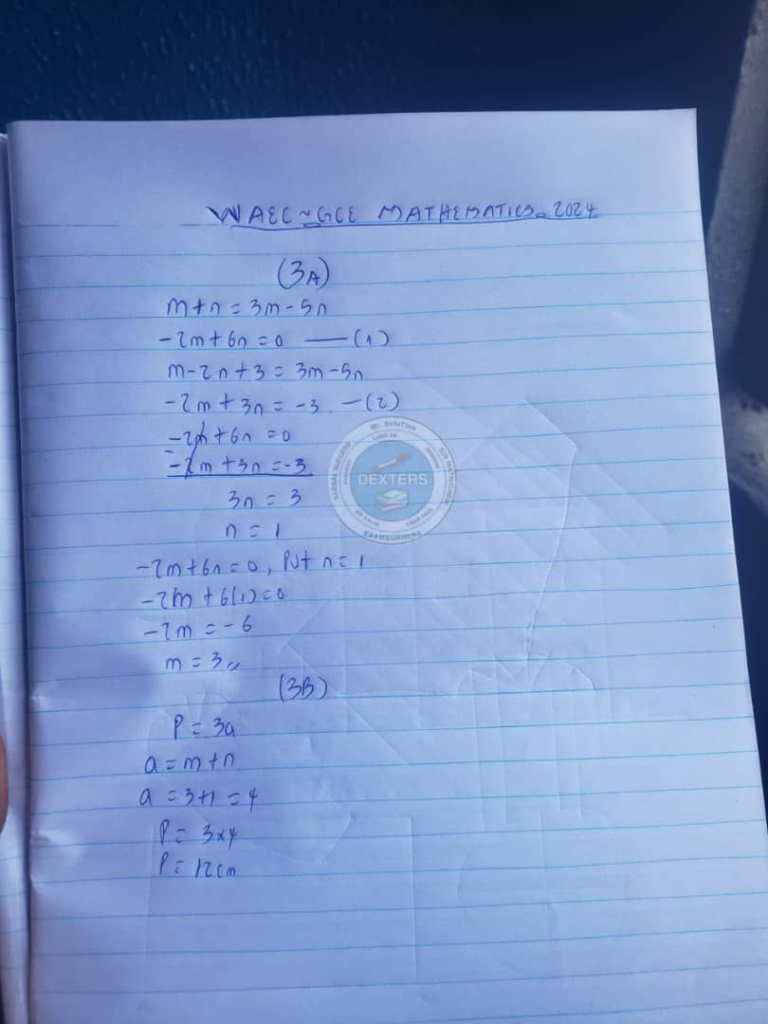 WAEC~GCE MATHEMATICS 2024
(3A)
m+n = 3m-5n
-2m+6n = 0 —(1)
m-2n+3 = 3m-5n
-2m+3n = -3 —(2)
-2m+6n = 0
-
-2m+3n = -3
3n = 3
n = 1
-2m+6n = 0, Put n = 1
-2m+6(1)=0
-2m = -6
m = 3,,
(3B)
P = 3a
a = m+n
a = 3+1 = 4
P = 3x4
P = 12cm
DEXTERS
EXAMBURNERS